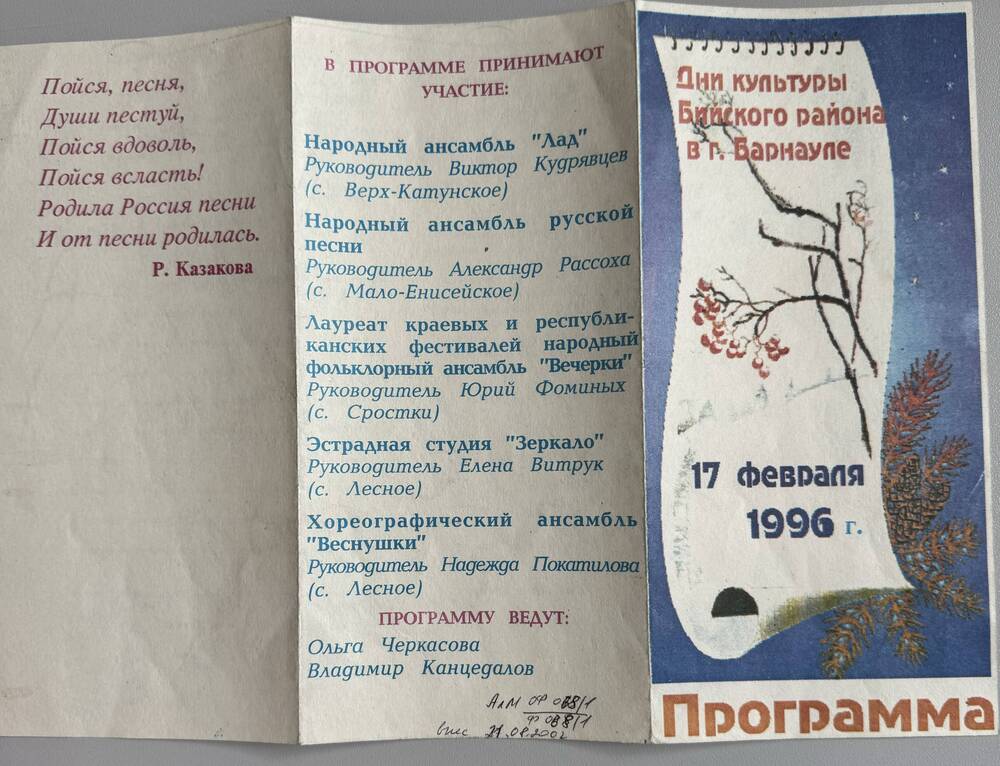 Пойся, песня,
Души пестуй,
Пойся вдоволь,
Пойся всласть!
Родила Россия песни
И от песни родилась.
Р. Казакова
В ПРОГРАММЕ ПРИНИМАЮТ
УЧАСТИЕ:
Народный ансамбль "Лад"
Руководитель Виктор Кудрявцев
(с. Верх-Катунское)
Народный ансамбль русской
песни
Руководитель Александр Рассоха
(с. Мало-Енисейское)
Лауреат краевых и республи-
канских фестивалей народный
фольклорный ансамбль "Вечерки"
Руководитель Юрий Фоминых
(с. Сростки)
Эстрадная студия "Зеркало"
Руководитель Елена Витрук
(с. Лесное)
Хореографический ансамбль
"Веснушки"
Руководитель Надежда Покатилова
(с. Лесное)
ПРОГРАММУ ВЕДУТ:
Ольга Черкасова
Владимир Канцедалов
АлМ ОФ
Дни культуры
Бийского района
в г. Барнауле
17 февраля
1996 г.
Программа